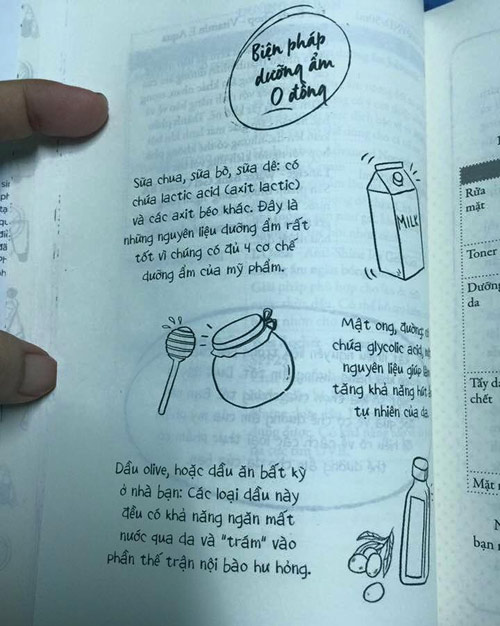 Biện pháp
dưỡng ẩm
0 đồng
Sữa chua, sữa bò, sữa dê: có
chứa lactic acid (axit lactic)
và các axit béo khác. Đây là
những nguyên liệu dưỡng ẩm rất
tốt vì chúng có đủ 4 cơ chế
dưỡng ẩm của mỹ phẩm.
MILK
Mật ong, đường
chứa glycolic acid,
nguyên liệu giúp
tăng khả năng hút
tự nhiên của da.
Dầu olive, hoặc dầu ăn bất kỳ
ở nhà bạn: Các loại dầu này
đều có khả năng ngăn mất
nước qua da và "trám" vào
phần thế trận nội bào hư hỏng.
Rửa
mặt
Toner
Dưỡng
da
Tẩy da
chết
Mặt
bạn